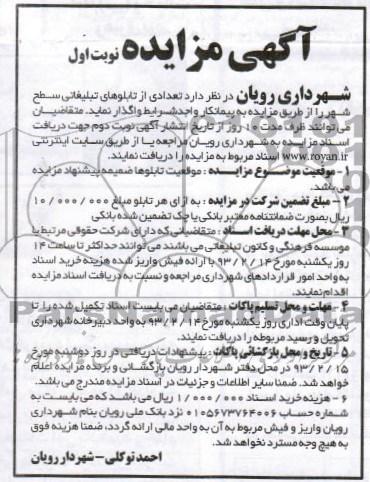 آگهی مزایده نوبت اول
شهرداری رویان در نظر دارد تعدادی از تابلوهای تبلیغاتی سطح
شهر را از طریق مزایده به پیمانکار واجدشرایط واگذار نماید. متقاضیان
می توانند ظرف مدت ۱۰ روز از تاریخ انتشار آگهی نوبت دوم جهت دریافت
اسناد مزایده به شهرداری رویان مراجعه یا از طریق سایت اینترنتی
www.royan.ir اسناد مربوط به مزایده را دریافت نمایند.
۱- موقعیت موضوع مزایده : موقعیت تابلوها ضمیمه پیشنهاد مزایده
می باشد.
۲- مبلغ تضمین شرکت در مزایده : به ازای هر تابلو مبلغ ۱۰/۰۰۰/۰۰۰
ریال بصورت ضمانتنامه معتبر بانکی یا چک تضمین شده بانکی
۳- محل مهلت دریافت اسناد : متقاضیانی که دارای شرکت حقوقی مرتبط یا
موسسه فرهنگی و کانون تبلیغاتی می باشند می توانند حداکثر تا ساعت ۱۴
روز یکشنبه مورخ ۹۳/۲/۱۴ با ارائه فیش واریز شده هزینه خرید اسناد
به واحد امور قراردادهای شهرداری مراجعه و نسبت به دریافت اسناد مزایده
اقدام نمایند.
۴- مهلت و محل تسلیم پاکات : متقاضیان می بایست اسناد تکمیل شده را تا
پایان وقت اداری روز یکشنبه مورخ ۹۳/۲/۱۴ به واحد دبیرخانه شهرداری
تحویل و رسید مربوطه را دریافت نمایند.
۵- تاریخ و محل بازگشائی پاکات : پیشنهادات دریافتی در روز دوشنبه مورخ
۹۳/۲/۱۵ در محل دفتر شهردار رویان بازگشائی و برنده مزایده اعلام
خواهد شد. ضمنا سایر اطلاعات و جزئیات در اسناد مزایده مندرج می باشد.
۶- هزینه خرید اسناد ۱/۰۰۰/۰۰۰ ریال می باشد که می بایست به
شماره حساب ۰۱۰۵۶۷۳۷۶۴۰۰۶ نزد بانک ملی رویان بنام شهرداری
رویان واریز و فیش مربوط به آن به واحد مالی ارائه گردد، ضمنا هزینه فوق
به هیچ وجه مسترد نخواهد شد.
احمد توکلی - شهردار رویان